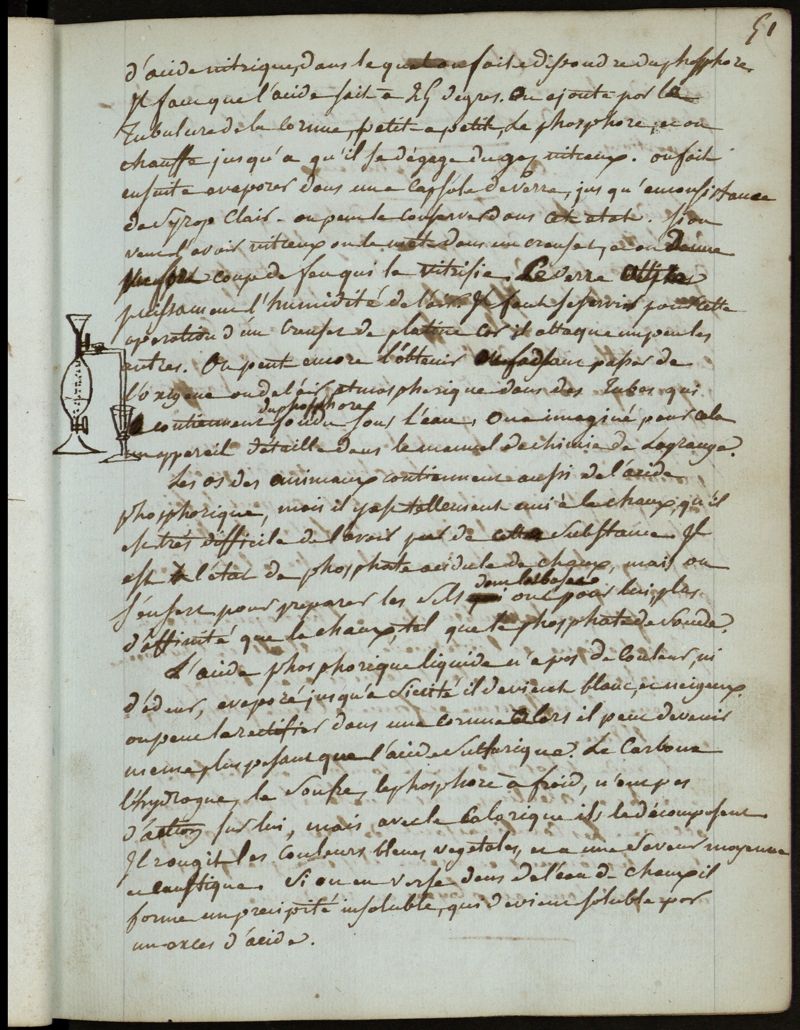 51
d'acide nitrique, dans lequel on fait dissoudre du phosphore.
Il faut que l'acide soit à 25 degrés. On ajoute par la
tubulure de la cornue, petit a petit, le phosphore, et on
chauffe jusqu'a qu'il se dégage du gas nitreux. on fait
ensuite evaporer dans une capsule de verre, jusqu'en consistance
de syrop clair. on peut le conserver dans cet etat. Si on
veut l'avoir vitreux on le met dans un creuset, et on donne
un fort coup de feu qui le vitrifie. Le verre attire
puissament l'humidité de l'air. Il faut se servir pour cette
opération d'un creuset de platine car il attaque un peu les
autres. On peut encore l'obtenir en faisant passer de
l'oxigene ou de l'air atmospherique dans des tubes qui
du phosphore
contiennent fondu sous l'eau, on a imaginé pour cela
un appareil détaillé dans le manuel de chimie de Lagrange.
Les os des animaux contiennent aussi de l'acide
phosphorique, mais il y est tellement uni à la chaux, qu'il
est très difficile de l'avoir pur de cette substance. Il
est à l'état de phosphate acidule de chaux, mais on
dont les bases
s'en sert pour preparer les sels ont pour lui plus
d'affinité que la chaux, tel que le phosphate de soude.
L'acide phosphorique liquide n'a pas de couleur, ni
d'odeur, evaporé jusqu'à siccité il devient blanc, et neigeux.
on peut le rectifier dans une cornue alors il peut devenir
meme plus pesant que l'acide sulfurique. Le carbone
l'hydrogne, le soufre, le phosphore à froid, n'ont pas
d'action sur lui, mais avec le calorique ils le décomposent.
Il rougit les couleurs bleues vegetales, et a une saveur moyenne
et caustique. Si on en verse dans de l'eau de chaux il
forme un precipité insoluble, qui devient soluble par
un exces d'acide.